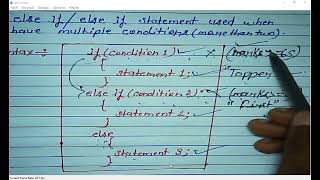 else if / else if statement used when
have multiple conditions (more than two).
ntax :-
if (condition 1) ✓ × (marks >=65)
{
statement 1; "Topper
}
else if (condition 2) ✓ (marks
{ or "First"
statement 2;
}
else
{
statement 3;
}